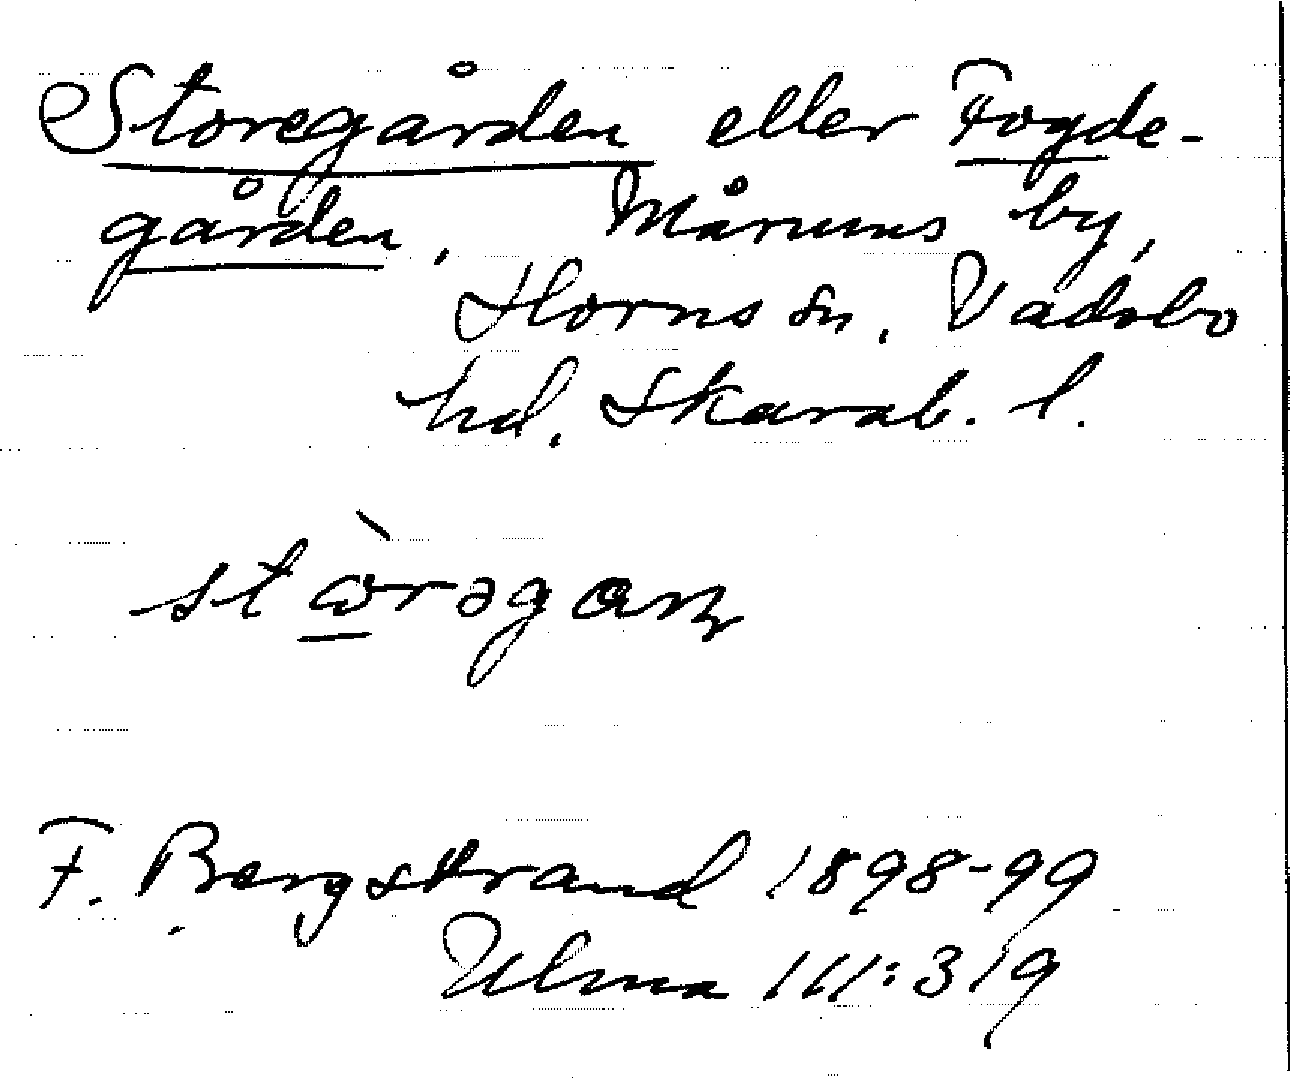 Storegården eller Fogde-
gården, Mårums by,
Horns sn, Vadsbo
hd, Skarab. l.
stꞷ̀rəgaɳ
F. Bergstrand 1898-99
Ulma 111:319